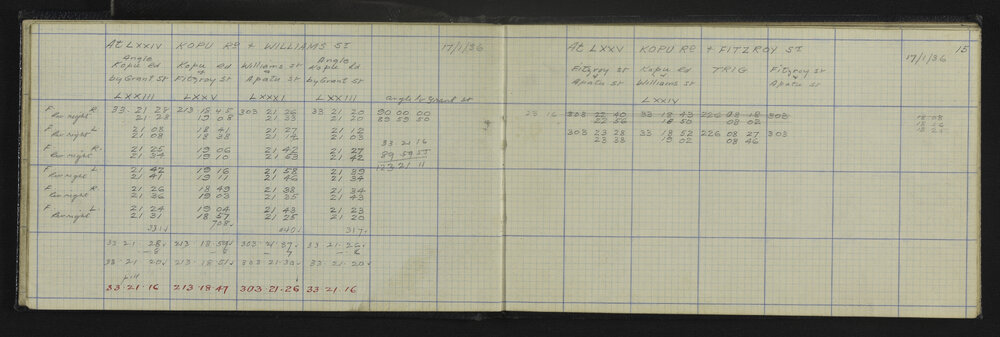 At LXXIV KOPU RD + WILLIAMS ST 17/1/36
Angle Angle
Kopu Rd Kopu Rd Williams St Kopu Rd
+ +
by Grant St Fitzroy St Apatu St by Grant St
LXXIII LXXV LXXXI LXXIII Angle to Grant St
F R. 33 21 28 213 18 45 303 21 26 33 21 20 90 00 00
Rev night 21 28 19 08 21 33 21 20 89 59 50
F L 21 08 18 41 21 27 21 12
Rev night 21 08 18 38 21 03
33 21 16
F R. 21 25 19 06 21 42 21 27 89 59 55
Rev night 21 34 19 10 21 53 21 42 123 21 11
F L. 21 42 19 16 21 58 21 39
Rev night 21 41 19 11 21 46 21 34
F R 21 26 18 49 21 38 21 34
Rev night 21 36 19 03 21 35 21 43
F L. 21 24 19 04 21 43 21 23
Rev night 21 31 18 57 21 25 21 20
331 708 317
33 21 28 213 18 59 303 21 37 33 21 26
-8 -8 -7 -6
33 21 20 213 18 51 303 21 30 33 21 20
33 21 16 213 18 47 303 21 26 33 21 16
15
At LXXV KOPU RD + FITZROY ST 17/1/36
Fitzroy St Kopu Rd TRIG Fitzroy St
+ + +
Apatu St Williams St Apatu St
LXXIV
23 16 303 22 40 33 18 43 226 08 18 303
22 56 18 50 08 02
303 23 28 33 18 52 226 08 27 303
23 38 19 02 08 46
18 08
18 16
18 25